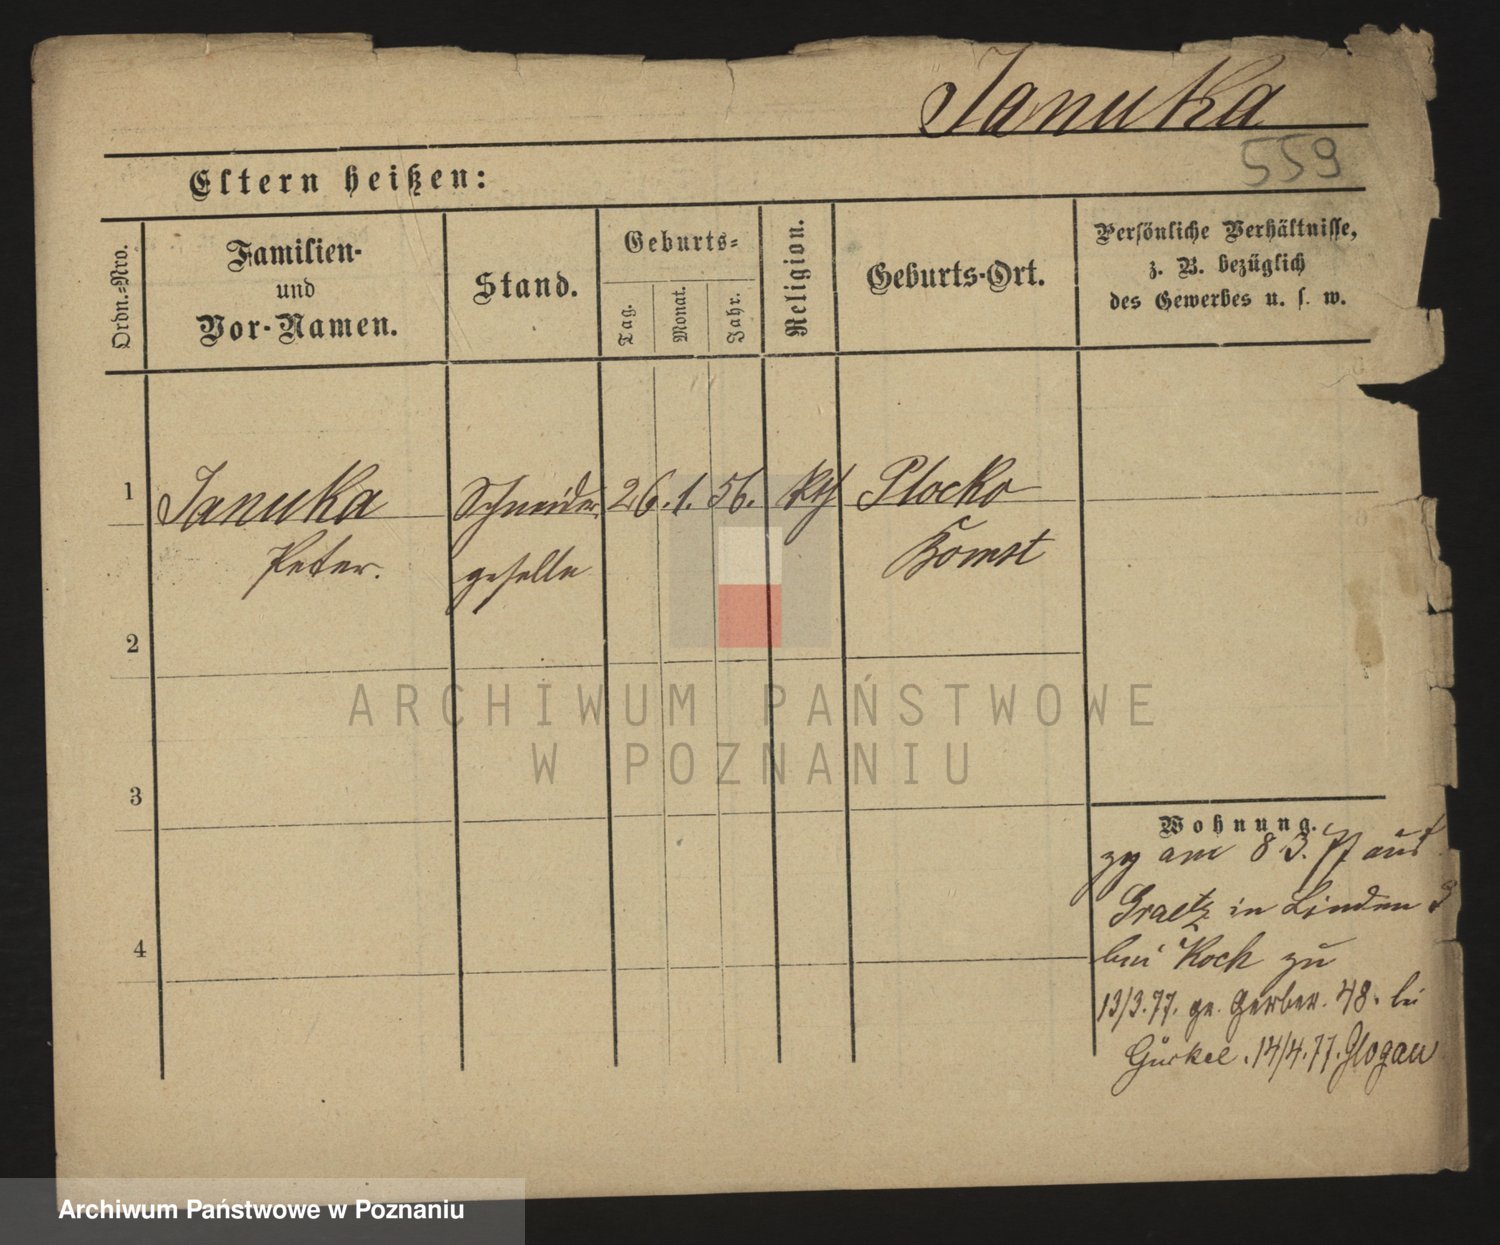 Januka
559
Eltern heißen:
Ordn.-Nro.
Familien-
und
Vor-Namen.
Stand.
Geburts-
Tag.
Monat.
Jahr.
Religion.
Geburts-Ort.
Persönliche Verhältnisse,
z. B. bezüglich
des Gewerbes u. s. w.
1
Januka
Peter.
Schneider
geselle
26. 1. 56.
kth
Plocko
Bomst
2
3
4
Wohnung.
zg am 8 3. 77 aus
Graetz in Linden 3
bei Koch zu
13/3.77. gz. Gerber. 48. bei
Gürkel. 14/4.77. Glogau
ARCHIWUM PAŃSTWOWE
W POZNANIU
Archiwum Państwowe w Poznaniu